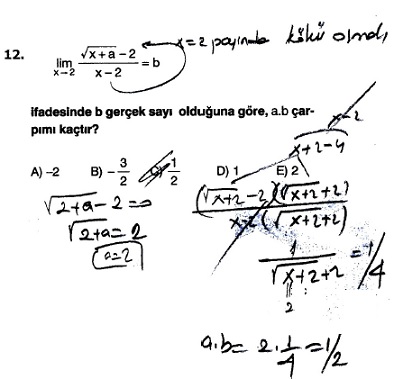 12.
lim x→2 (√x+a - 2)/(x-2) = b
x=2 payında kökü olmalı
ifadesinde b gerçek sayı olduğuna göre, a.b çar-
pımı kaçtır?
A) -2 B) -3/2 C) 1/2 D) 1 E) 2
√2+a - 2 = 0
√2+a = 2
a=2
x-2
x+2-4
(√x+2 - 2)(√x+2 + 2)
x-2 (√x+2 + 2)
1/(√x+2 + 2) = 1/4
2
a.b = 2 . 1/4 = 1/2